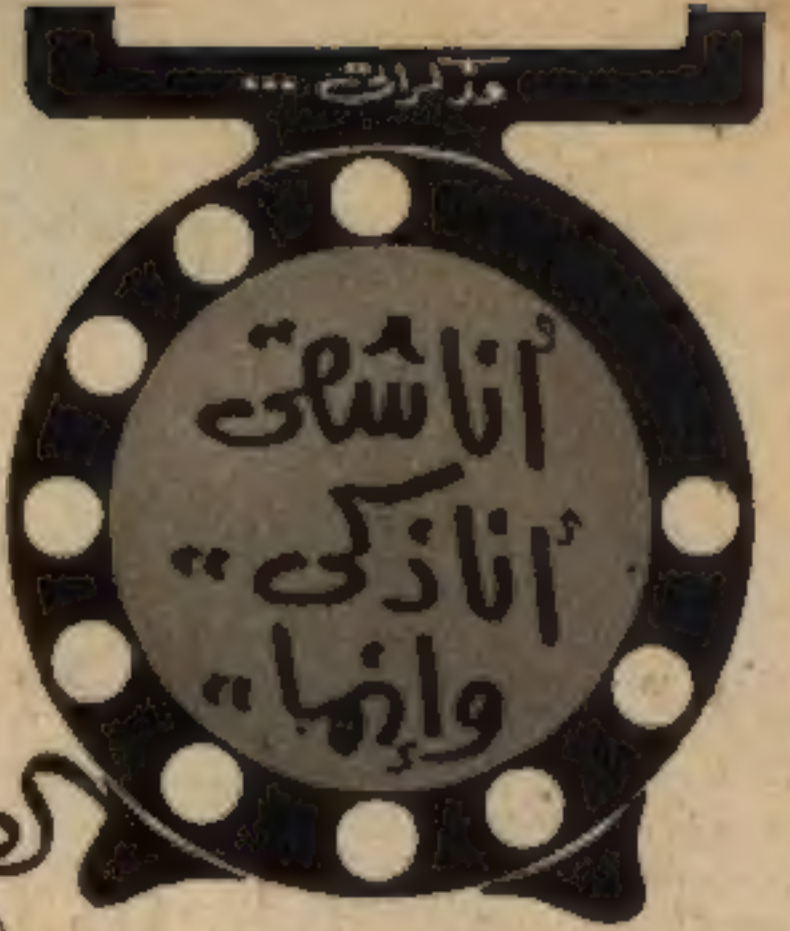 مذكرات ...
أنا شقى
أنا ذكى ..
وإنما ..